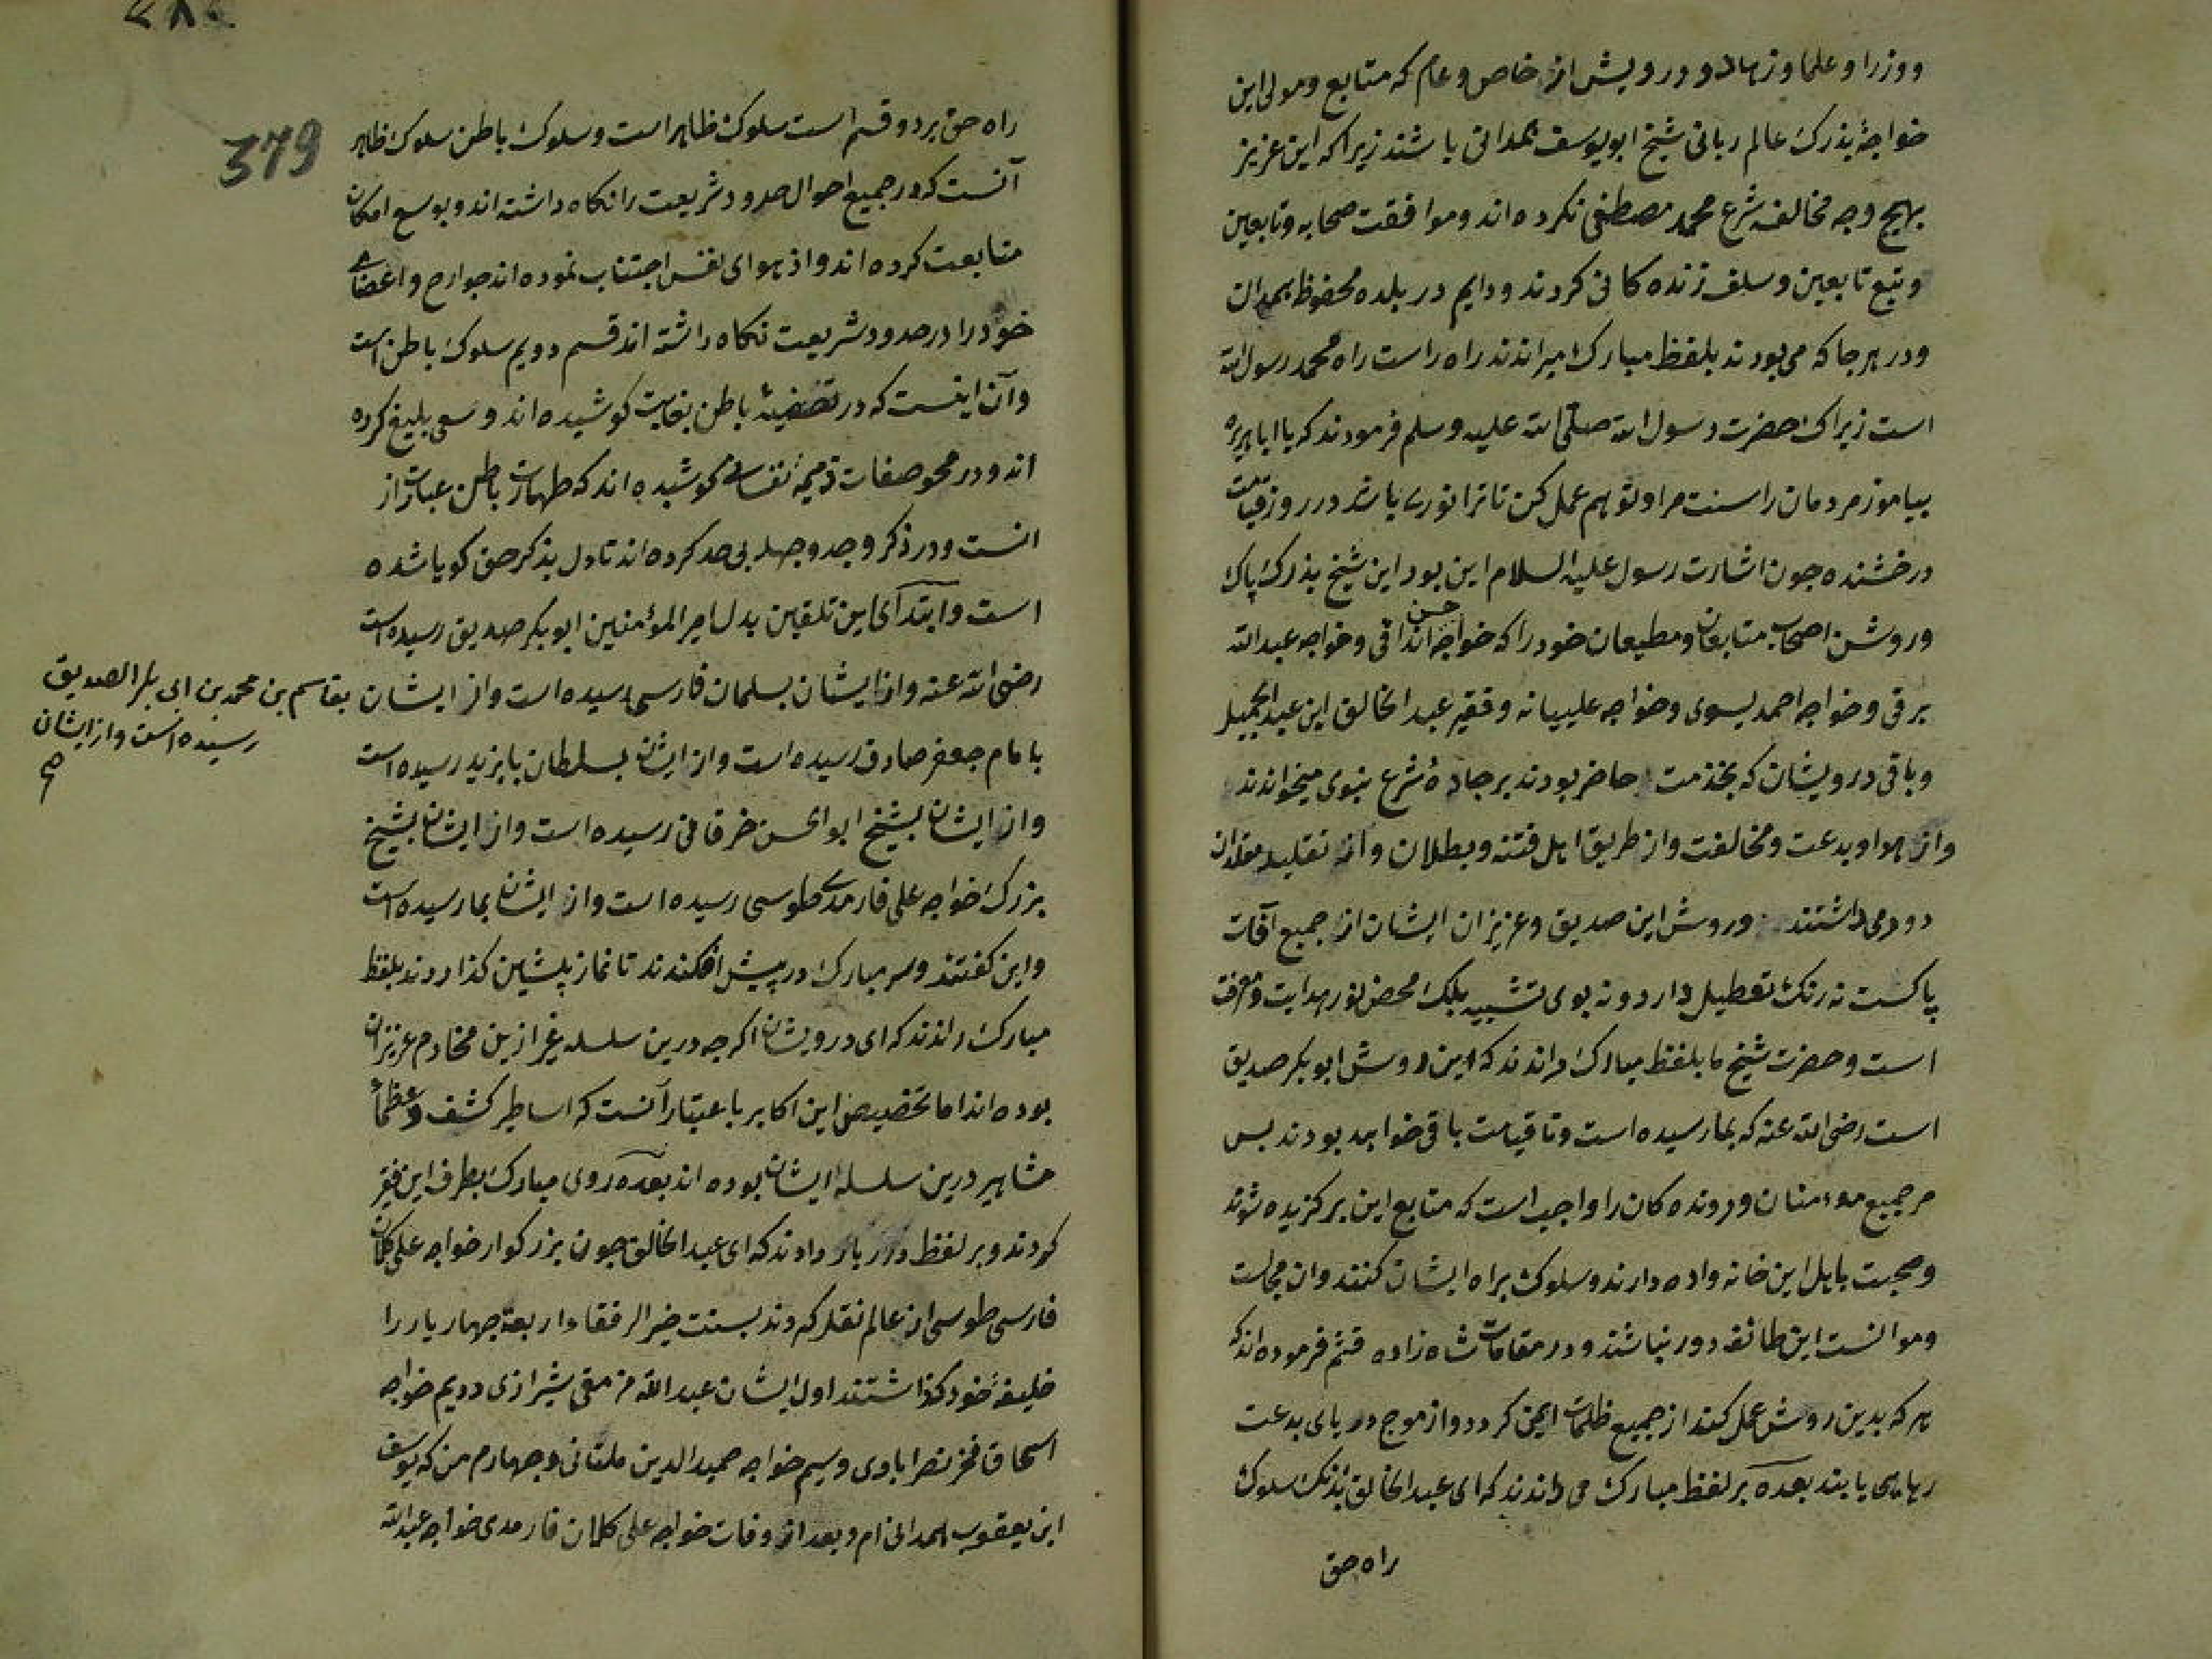 ووزرا و علما و زهاد و درویش از خاص و عام که متابع و مولی این
خواجهٔ بذرک عالم ربانی شیخ ابو یوسف همدانی باشند زیرا که این عزیز
بهیچ وجه مخالف شرع محمد مصطفی نکرده اند و موافقت صحابه و تابعین
و تبع تابعین و سلف زنده کانی کردند و دایم در بلده محفوظ همدان
و در هر جا که می بودند بلفظ مبارک میراندند راه راست راه محمد رسول الله
است زیراک حضرت رسول الله صلی الله علیه و سلم فرمودند که یا ابا هریره
بیاموز مردمان را سنت مرا و تو هم عمل کن تا ترا نوری باشد در روز قیامت
درخشنده جون اشارت رسول علیه السلام این بود این شیخ بذرک پاک
و روشن اصحاب متابعان و مطیعان خود را که خواجه حسن انداقی و خواجه عبد الله
برقی و خواجه احمد یسوی و خواجه علیبیانه و فقیر عبد الخالق ابن عبد الجمیل
و باقی درویشان که بخدمت حاضر بودند بر جادهٔ شرع نبوی میخواندند
و از هوا و بدعت و مخالفت و از طریق اهل فتنه و بطلان و از تقلید مقلدان
دور می داشتند و روش این صدیق و عزیزان ایشان از جمیع آفات
پاکست نه رنک تعطیل دارد و نه بوی تشبیه بلک محض نور هدایت و معرفت
است و حضرت شیخ ما بلفظ مبارک راندند که این روش ابو بکر صدیق
است رضی الله عنه که بما رسیده است و تا قیامت باقی خواهد بودند بس
مر جمیع مومنان و رونده کان را واجب است که متابع این بر کزیده شوند
و صحبت باهل این خانه واده دارند و سلوک براه ایشان کنند و ان مجالست
و موانست این طائفه دور نباشند و در مقامات شاه زاده قثم فرموده اند که
هر که بدین روش عمل کند از جمیع ظلمات ایمن کردد و از موج دریای بدعت
رهایی یابند بعده بر لفظ مبارک می راندند که ای عبد الخالق بدانک سلوک
راه حق
379
راه حق بر دو قسم است سلوک ظاهر است و سلوک باطن سلوک ظاهر
آنست که در جمیع احوال حدود شریعت را نکاه داشته اند و بوسع امکان
متابعت کرده اند و از هوای نفس اجتناب نموده اند جوارح و اعضای
خود را در حدود شریعت نکاه داشته اند قسم دویم سلوک باطن است
و آن اینست که در تصفیهٔ باطن بغایت کوشیده اند و سعی بلیغ کرده
اند و در محو صفات ذمیمهٔ نفسانی کوشیده اند که طهارت باطن عبارت از
انست و در ذکر و جد و جهد بی حد کرده اند تا دل بذکر حق کویا شده
است و ابتدای این تلقین بدل امیر المؤمنین ابو بکر صدیق رسیده است
رضی الله عنه و از ایشان بسلمان فارسی رسیده است و از ایشان
بقاسم بن محمد بن ابی بکر الصدیق
رسیده است و از ایشان
صح
بامام جعفر صادق رسیده است و از ایشان بسلطان بایزید رسیده است
و از ایشان بشیخ ابو الحسن خرقانی رسیده است و از ایشان بشیخ
بزرک خواجه علی فارمدی طوسی رسیده است و از ایشان بما رسیده است
و این کفتند و سر مبارک در پیش افکندند تا نماز پیشین کذاردند بلفظ
مبارک راندند که ای درویشان اکر جه درین سلسله غیر ازین مخادم عزیزان
بوده اند اما تخصیص این اکابر باعتبار آنست که اساطیر کشف و عظمای
مشاهیر درین سلسله ایشان بوده اند بعده روی مبارک بطرف این فقیر
کردند و بر لفظ درر بار دادند که ای عبد الخالق جون بزرکوار خواجه علی کلان
فارسی طوسی از عالم نقل کردند بسنت خیر الرفقاء اربعة جهار یار را
خلیفهٔ خود کذاشتند اول ایشان عبد الله شیرازی دویم خواجه
اسحاق فخر نصرابادی و سیم خواجه حمید الدین ملتانی و جهارم من که یوسف
ابن یعقوب همدانی ام و بعد از وفات خواجه علی کلان فارمدی خواجه عبد الله